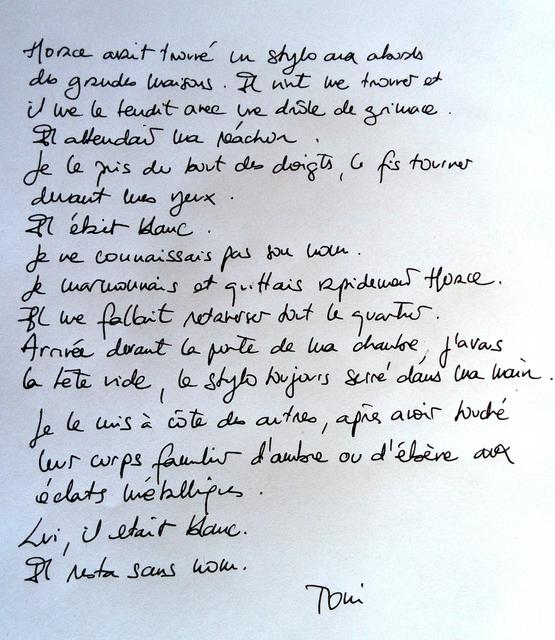 Horace avait trouvé un stylo aux abords
des grandes maisons. Il vint me trouver et
il me le tendit avec une drôle de grimace.
Il attendait ma réaction.
Je le pris du bout des doigts, le fis tourner
devant mes yeux.
Il était blanc.
Je ne connaissais pas son nom.
Je marmonnais et quittais rapidement Horace.
Il me fallait retraverser tout le quartier.
Arrivée devant la porte de ma chambre, j'avais
la tête vide, le stylo toujours serré dans ma main.
Je le mis à côté des autres, après avoir touché
leur corps familier d'ambre ou d'ébène aux
éclats métalliques.
Lui, il etait blanc.
Il resta sans nom.
Toni